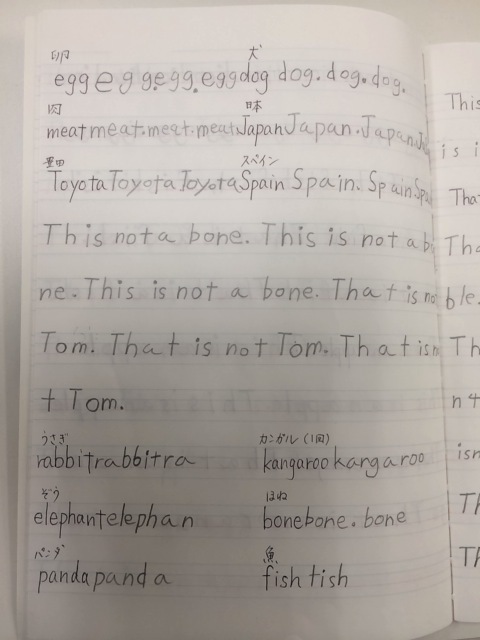 卵 犬
egg e g g.egg.egg dog dog. dog. dog.
肉 日本
meat meat.meat.meat. Japan Japan.Japan.
豊田 スペイン
Toyota Toyota Toyota Spain Spain. Spain
This is not a bone. This is not a bo
ne. This is not a bone. That is no
Tom. That is not Tom. That is n
t Tom.
うさぎ カンガルー(1回)
rabbit rabbit ra kangaroo kangaroo
ぞう ほね
elephant elephan bone bone. bone
パンダ 魚
panda panda fish fish
This
is i
That
Tha
ble.
Th
n4
isn
Th
Th